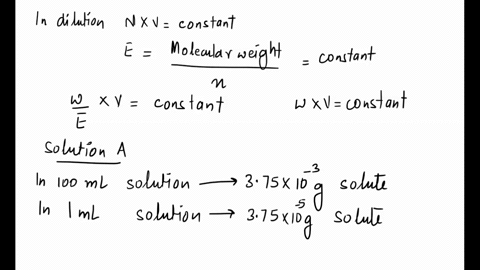 In dilution N×V = constant
E = Molecular weight / n = constant
w/E × V = constant W×V = constant
Solution A
In 100 mL solution ⟶ 3.75×10⁻³ g solute
In 1 mL solution → 3.75×10⁻⁵ g solute